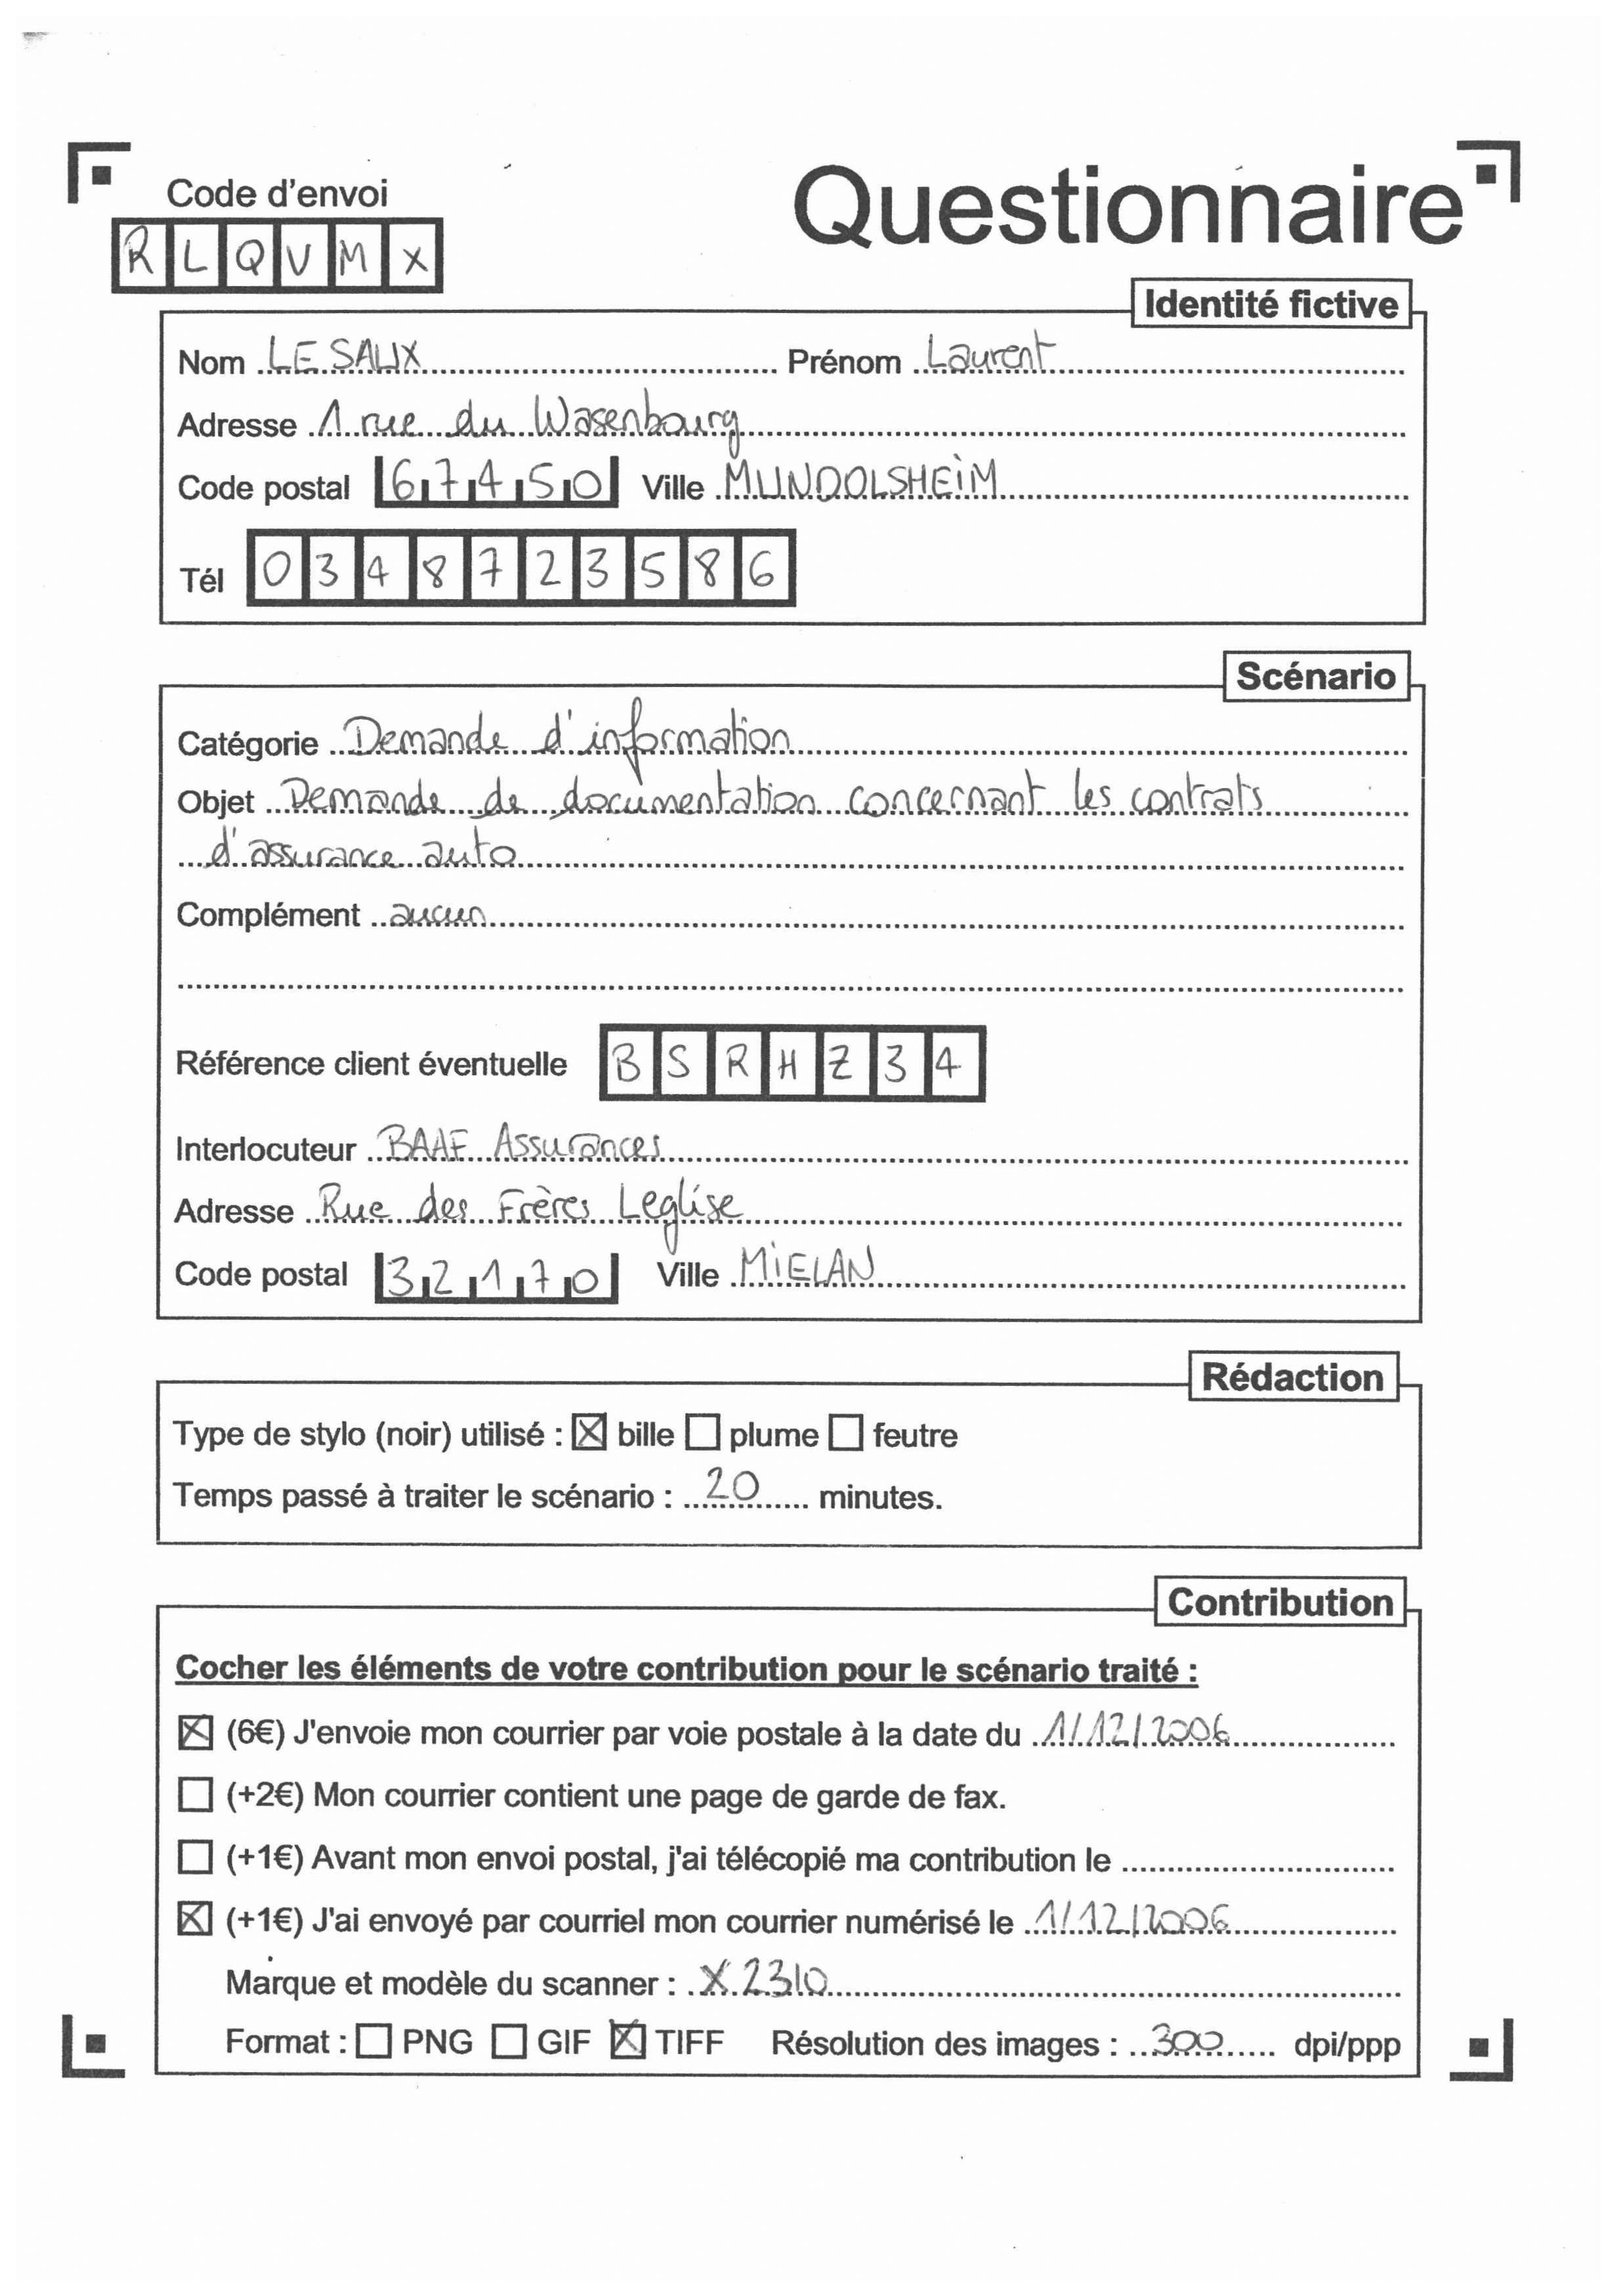 Code d'envoi
Questionnaire
R L Q V M X
Identité fictive
Nom LE SAUX Prénom Laurent
Adresse 1 rue du Wasenbourg
Code postal 67450 Ville MUNDOLSHEIM
Tél 0348723586
Scénario
Catégorie Demande d'information
Objet Demande de documentation concernant les contrats
d'assurance auto
Complément aucun
Référence client éventuelle BSRHZ34
Interlocuteur BAAF Assurances
Adresse Rue des Frères Leglise
Code postal 32170 Ville MIELAN
Rédaction
Type de stylo (noir) utilisé : ☒ bille ☐ plume ☐ feutre
Temps passé à traiter le scénario : 20 minutes.
Contribution
Cocher les éléments de votre contribution pour le scénario traité :
☒ (6€) J'envoie mon courrier par voie postale à la date du 1/12/2006
☐ (+2€) Mon courrier contient une page de garde de fax.
☐ (+1€) Avant mon envoi postal, j'ai télécopié ma contribution le
☒ (+1€) J'ai envoyé par courriel mon courrier numérisé le 1/12/2006
Marque et modèle du scanner : X2310
Format : ☐ PNG ☐ GIF ☒ TIFF Résolution des images : 300 dpi/ppp